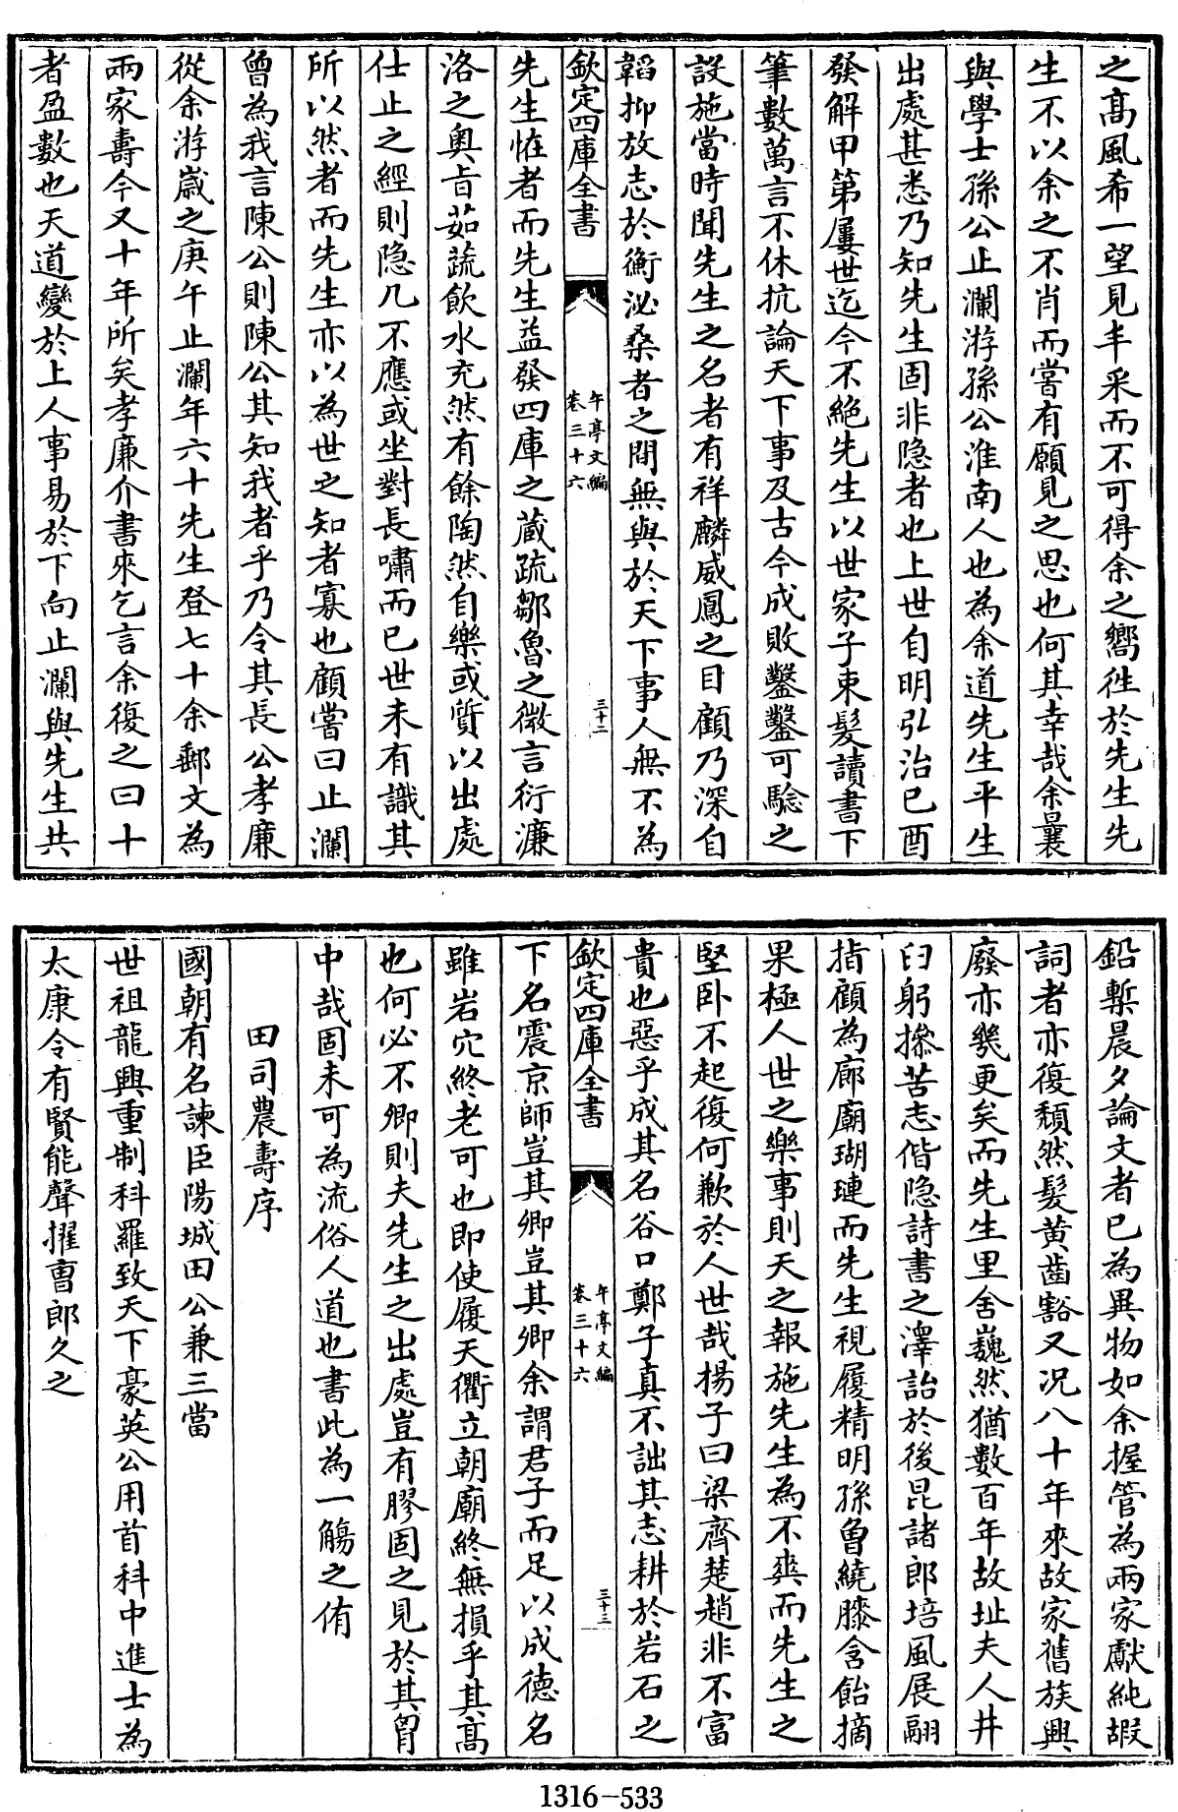 之髙風希一望見丰采而不可得余之嚮徃於先生先
生不以余之不肖而嘗有願見之思也何其幸哉余曩
與學士孫公止瀾游孫公淮南人也為余道先生平生
出處甚悉乃知先生固非隐者也上世自明弘治已酉
發解甲第屢世迄今不絶先生以世家子束髪讀書下
筆數萬言不休抗論天下事及古今成敗鑿鑿可驗之
設施當時聞先生之名者有祥麟威鳳之目顧乃深自
韜抑放志於衡泌桑者之間無與於天下事人無不為
欽定四庫全書
午亭文編
卷三十六
三十二
先生恠者而先生益發四庫之蔵疏鄒魯之微言衍濂
洛之奥㫖茹蔬飲水充然有餘陶然自樂或質以出處
仕止之經則隐几不應或坐對長嘯而已世未有識其
所以然者而先生亦以為世之知者寡也顧嘗曰止瀾
曾為我言陳公則陳公其知我者乎乃令其長公孝廉
從余游嵗之庚午止瀾年六十先生登七十余郵文為
兩家壽今又十年所矣孝廉介書來乞言余復之曰十
者盈數也天道變於上人事易於下向止瀾與先生共
鉛槧晨夕論文者已為異物如余握管為兩家獻純嘏
詞者亦復頽然髪黄齒豁又况八十年來故家舊族興
廢亦幾更矣而先生里舍巍然猶數百年故址夫人井
臼躬操苦志偕隐詩書之澤詒於後昆諸郎培風展翮
指顧為廊廟瑚璉而先生視履精明孫曾繞膝含飴摘
果極人世之樂事則天之報施先生為不爽而先生之
堅卧不起復何歉於人世哉揚子曰梁齊楚趙非不富
貴也惡乎成其名谷口鄭子真不詘其志耕於岩石之
欽定四庫全書
午亭文編
卷三十六
三十三
下名震京師豈其卿豈其卿余謂君子而足以成德名
雖岩穴終老可也即使履天衢立朝廟終無損乎其髙
也何必不卿則夫先生之出處豈有膠固之見於其胷
中哉固未可為流俗人道也書此為一觴之侑
田司農壽序
國朝有名諫臣陽城田公兼三當
世祖龍興重制科羅致天下豪英公用首科中進士為
太康令有賢能聲擢曹郎久之
1316-533